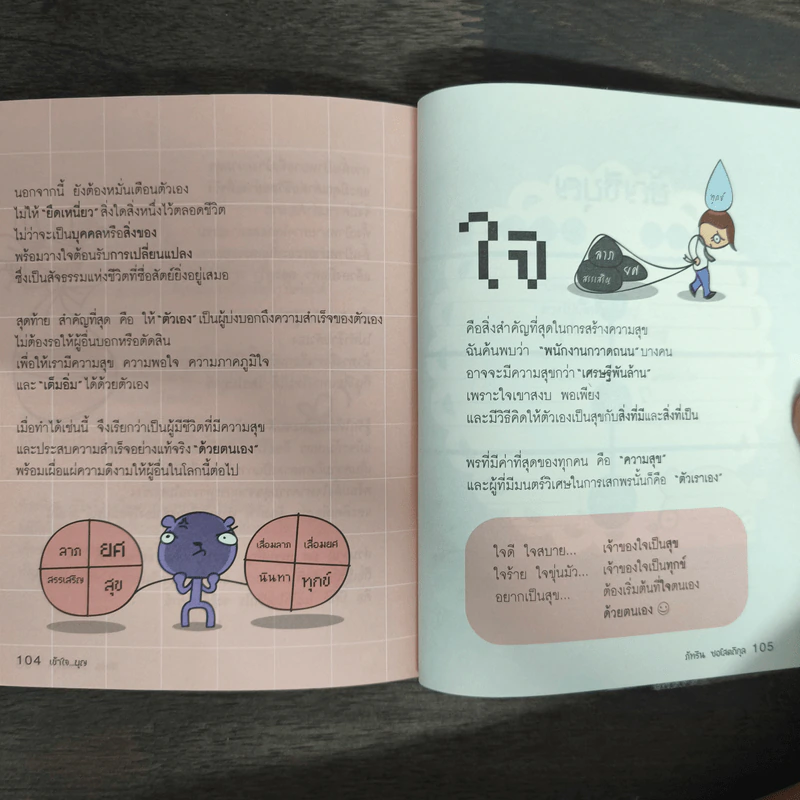 นอกจากนี้ ยังต้องหมั่นเตือนตัวเอง
ไม่ให้ "ยึดเหนี่ยว" สิ่งใดสิ่งหนึ่งไว้ตลอดชีวิต
ไม่ว่าจะเป็นบุคคลหรือสิ่งของ
พร้อมวางใจต้อนรับการเปลี่ยนแปลง
ซึ่งเป็นสัจธรรมแห่งชีวิตที่ซื่อสัตย์ยิ่งอยู่เสมอ
สุดท้าย สำคัญที่สุด คือ ให้ "ตัวเอง" เป็นผู้บ่งบอกถึงความสำเร็จของตัวเอง
ไม่ต้องรอให้ผู้อื่นบอกหรือตัดสิน
เพื่อให้เรามีความสุข ความพอใจ ความภาคภูมิใจ
และ "เต็มอิ่ม" ได้ด้วยตัวเอง
เมื่อทำได้เช่นนี้ จึงเรียกว่าเป็นผู้มีชีวิตที่มีความสุข
และประสบความสำเร็จอย่างแท้จริง "ด้วยตนเอง"
พร้อมเผื่อแผ่ความดีงามให้ผู้อื่นในโลกนี้ต่อไป
ลาภ ยศ
สรรเสริญ สุข
เสื่อมลาภ เสื่อมยศ
นินทา ทุกข์
104 เข้าใจ...บุญ
ทุกข์
ใจ
ลาภ ยศ
สรรเสริญ
คือสิ่งสำคัญที่สุดในการสร้างความสุข
ฉันค้นพบว่า "พนักงานกวาดถนน" บางคน
อาจจะมีความสุขกว่า "เศรษฐีพันล้าน"
เพราะใจเขาสงบ พอเพียง
และมีวิธีคิดให้ตัวเองเป็นสุขกับสิ่งที่มีและสิ่งที่เป็น
พรที่มีค่าที่สุดของทุกคน คือ "ความสุข"
และผู้ที่มีมนตร์วิเศษในการเสกพรนั้นก็คือ "ตัวเราเอง"
ใจดี ใจสบาย... เจ้าของใจเป็นสุข
ใจร้าย ใจขุ่นมัว... เจ้าของใจเป็นทุกข์
อยากเป็นสุข... ต้องเริ่มต้นที่ใจตนเอง
ด้วยตนเอง ☺
ภัทริน ซอโสตถิกุล 105